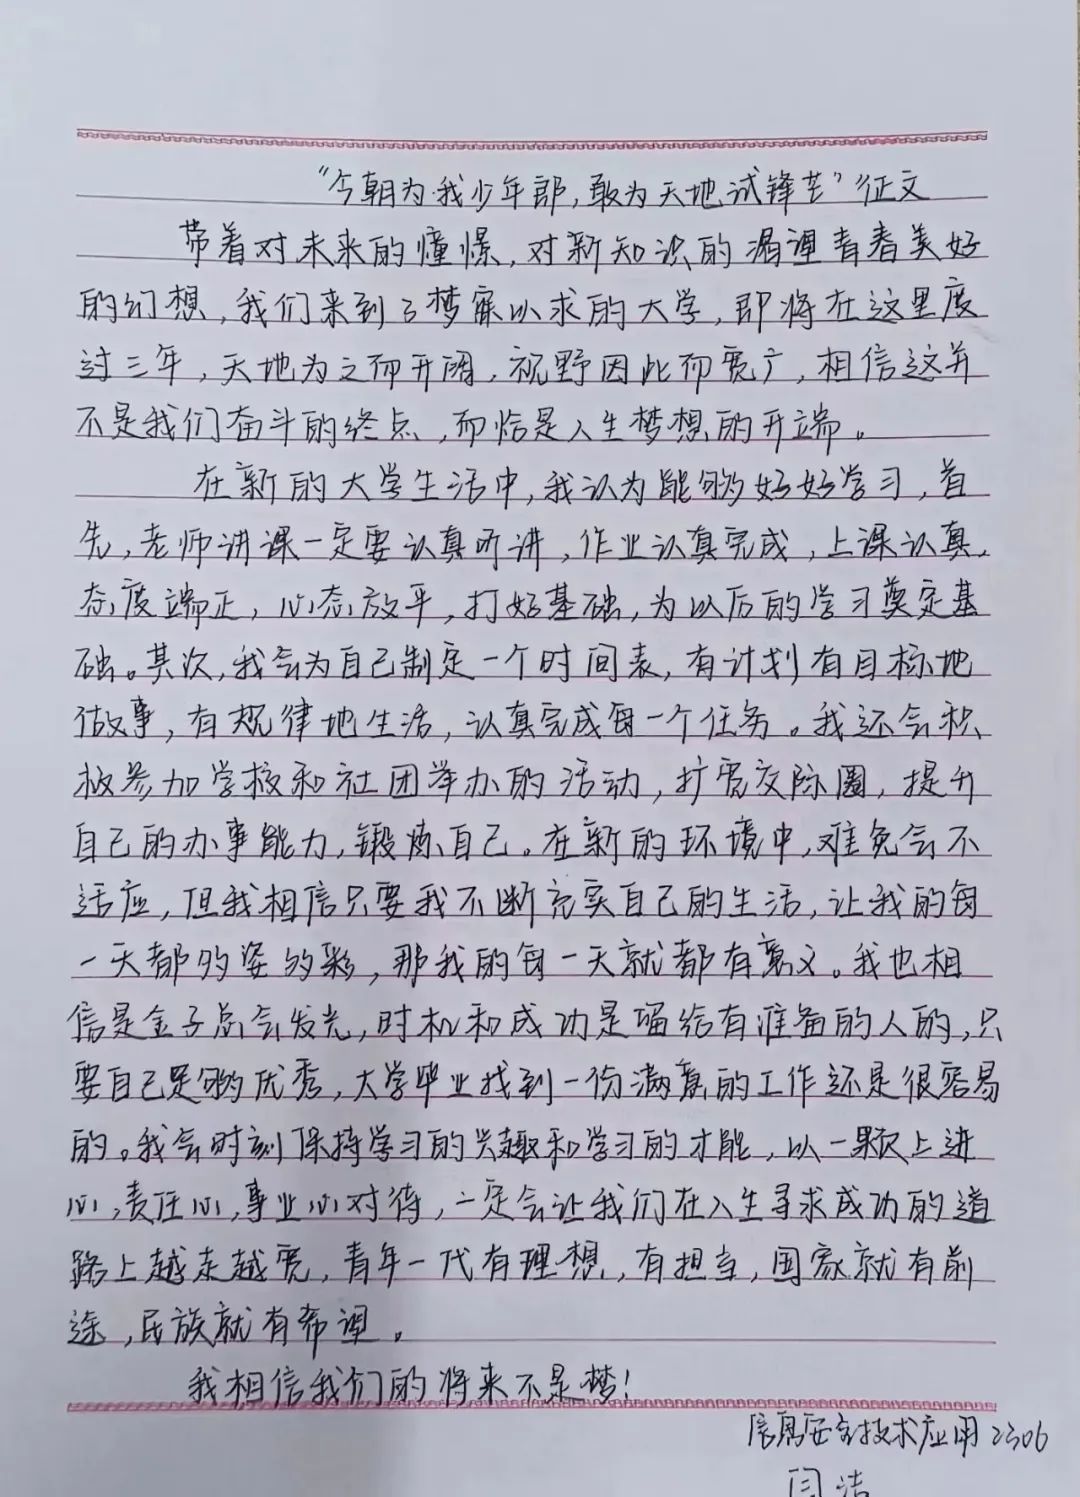 “今朝为我少年郎,敢为天地试锋芒”征文
带着对未来的憧憬,对新知识的渴望青春美好
的幻想,我们来到了梦寐以求的大学,即将在这里度
过三年,天地为之而开阔,视野因此而宽广,相信这并
不是我们奋斗的终点,而恰是人生梦想的开端。
在新的大学生活中,我认为能够好好学习,首
先,老师讲课一定要认真听讲,作业认真完成,上课认真,
态度端正,心态放平,打好基础,为以后的学习奠定基
础。其次,我会为自己制定一个时间表,有计划有目标地
做事,有规律地生活,认真完成每一个任务。我还会积
极参加学校和社团举办的活动,扩宽交际圈,提升
自己的办事能力,锻炼自己。在新的环境中,难免会不
适应,但我相信只要我不断充实自己的生活,让我的每
一天都多姿多彩,那我的每一天就都有意义。我也相
信是金子总会发光,时机和成功是留给有准备的人的,只
要自己足够优秀,大学毕业找到一份满意的工作还是很容易
的。我会时刻保持学习的兴趣和学习的才能,以一颗上进
心,责任心,事业心对待,一定会让我们在人生寻求成功的道
路上越走越宽,青年一代有理想,有担当,国家就有前
途,民族就有希望。
我相信我们的将来不是梦!
信息安全技术应用2306
闫洁